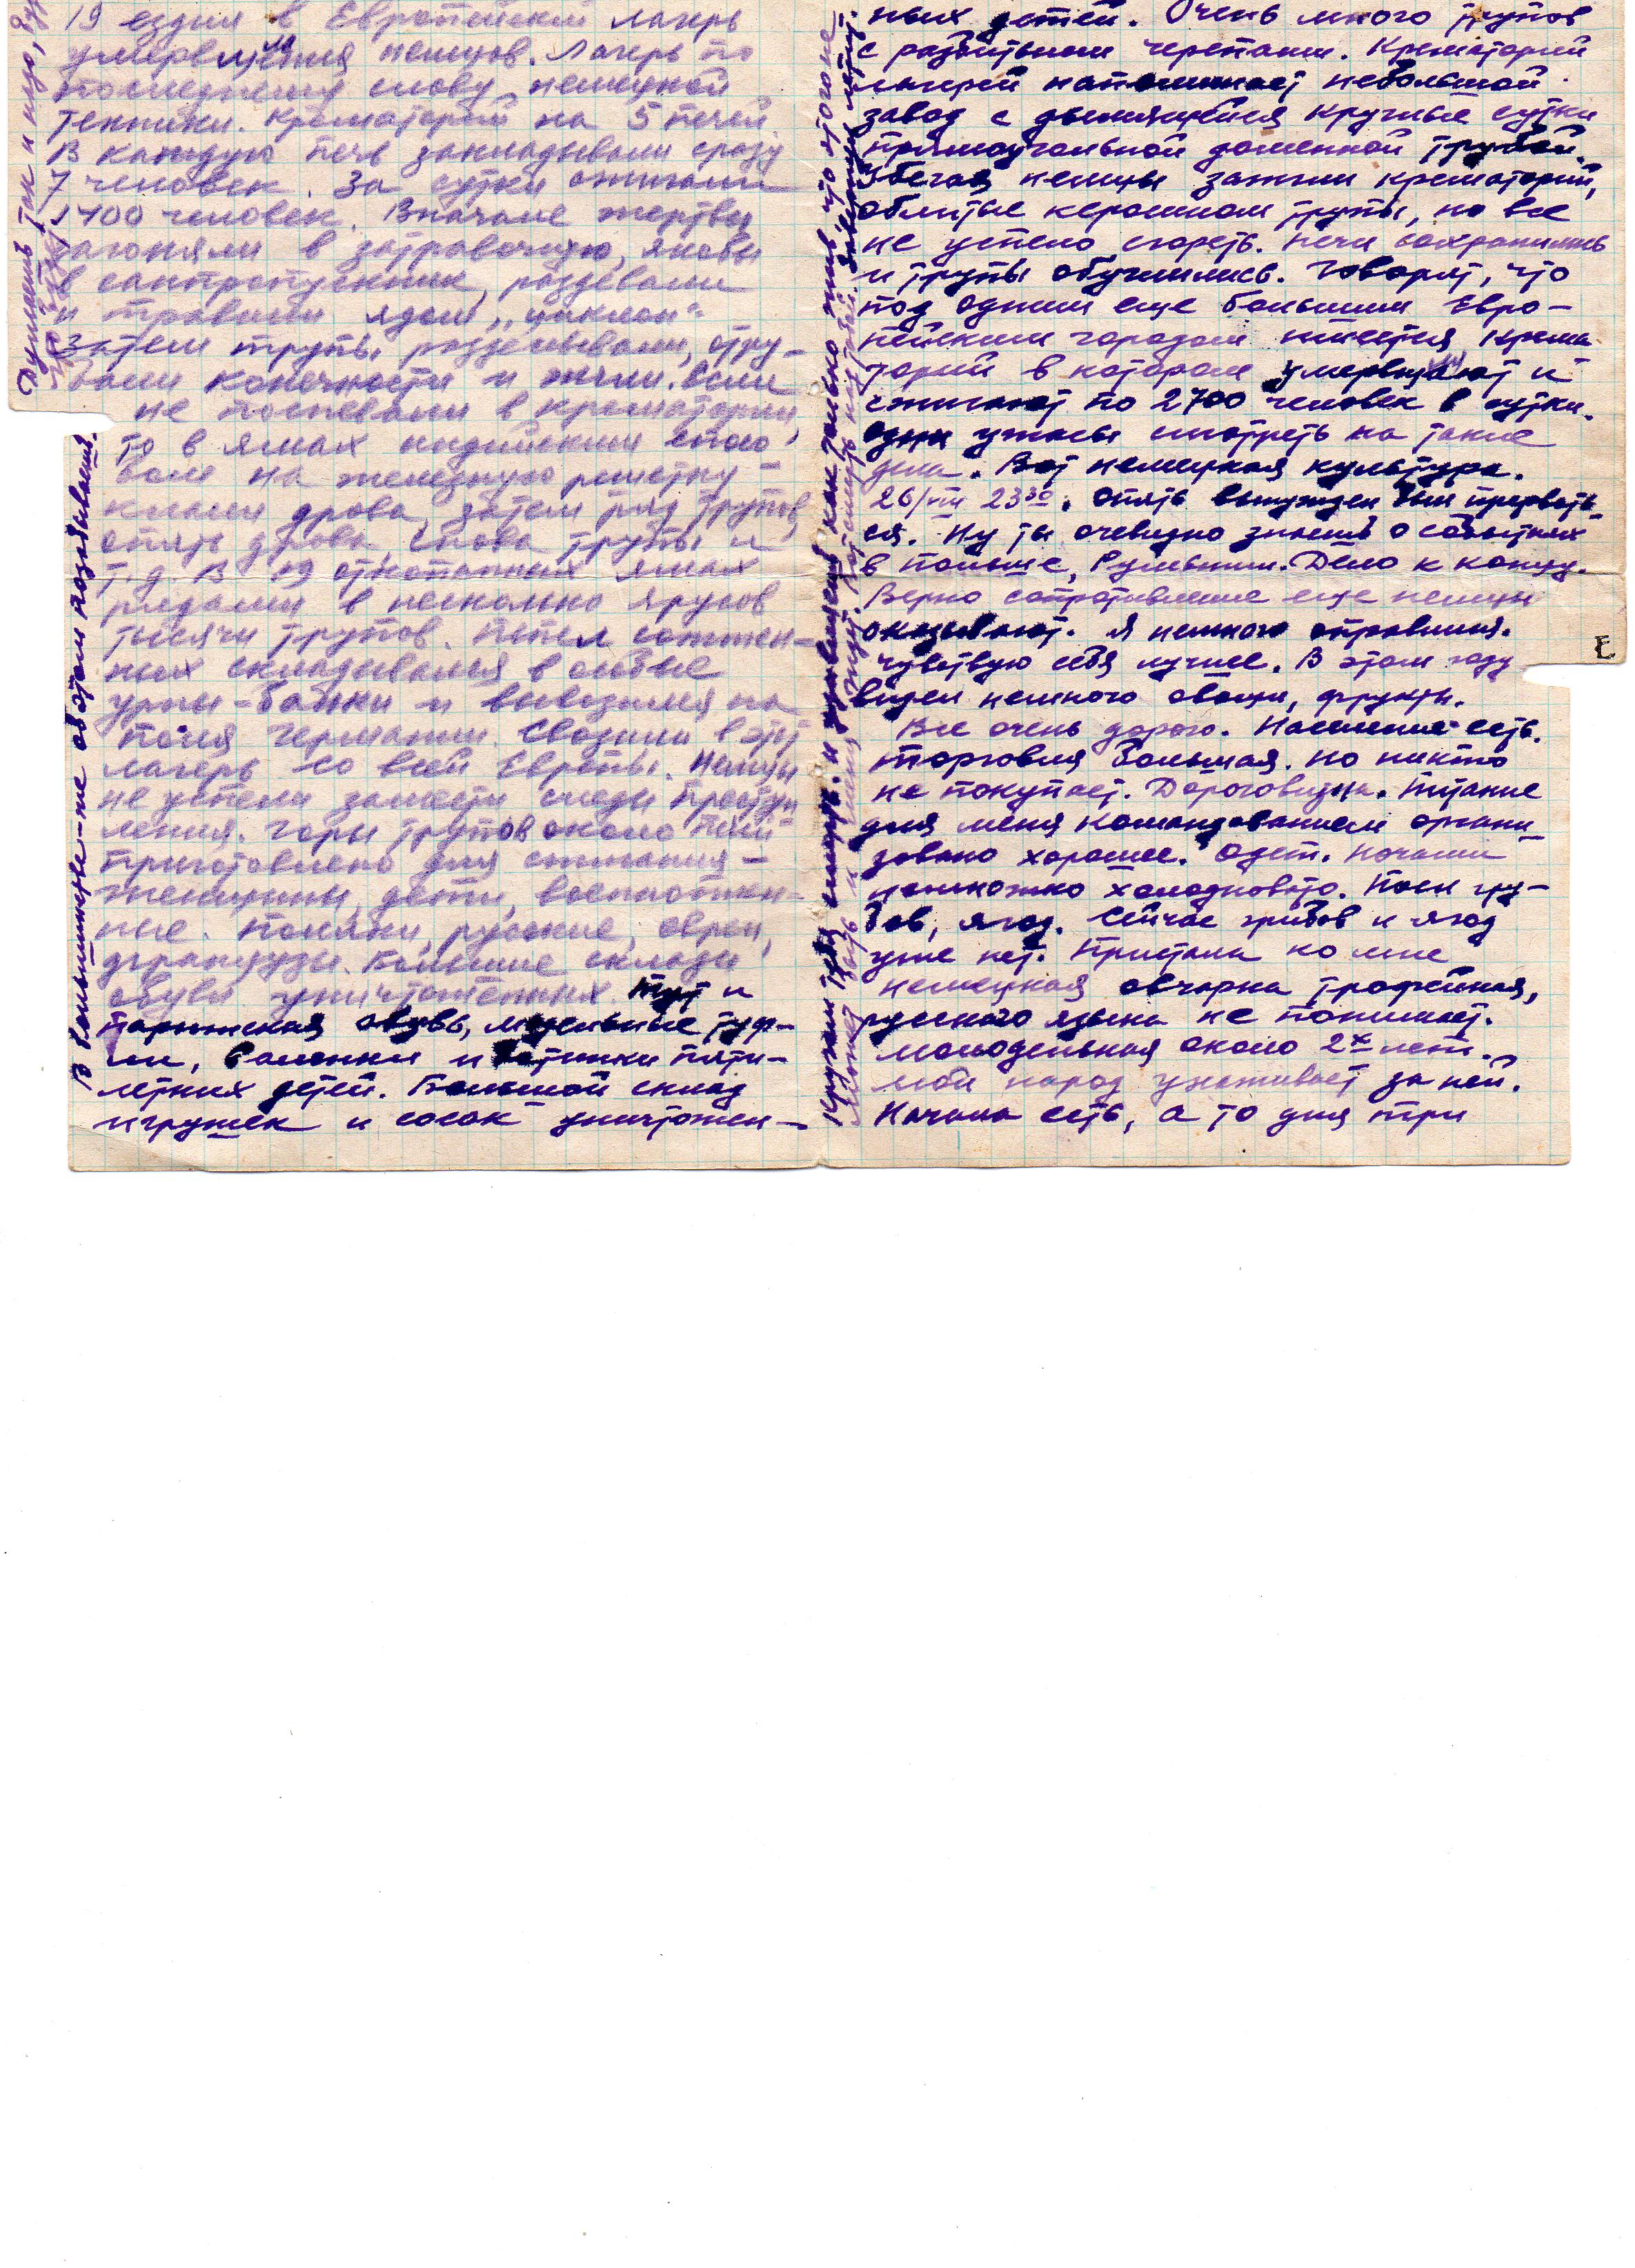 19 ездил в Европейский лагерь
умервщления немцов. Лагерь по
последнему слову немецкой
техники. Крематорий на 5 печей.
В каждую печь закладывали сразу
7 человек. За сутки сжигали
1400 человек. Вначале жертвы
загоняли в затравочную, якобы
в санпропускник, раздевали
и травили ядом „циклон"
Затем трупы разделывали, отру-
бали конечности и жгли. Если
не поспевали в крематории,
то в ямах индийским спосо
бом на железную решетку -
клали дрова, затем ряд трупов,
опять дрова, снова трупы и
т.д. В 19 откопанных ямах
рядами в несколько ярусов
тысячи трупов. Пепел сожжен-
ных складывался в особые
урны-банки и вывозился на
поля Германии. Свозили в этот
лагерь со всей Европы. Немцы
не успели замести следы преступ
ления. Горы трупов около печей
приготовлено для сжигания -
женщины, дети, военнопен-
ные. Поляки, русские, евреи,
французы. Большие склады
обуви уничтоженных. Тут и
парижская обувь, модельные туф-
ли, валенки и ботинки пяти-
летних детей. Большой склад
игрушек и сосок уничтожен-
ных детей. Очень много трупов
с разбитыми черепами. Крематорий
лагерей напоминает небольшой
завод с дымящейся круглые сутки
прямоугольной доменной трубой.
Убегая немцы зажгли крематорий,
облитые керосином трупы, но все
не успело сгореть. Печи сохранились
и трупы обуглились. Говорят, что
под одним еще большим Евро-
пейским городом имеется крема
торий в котором умервщляют и
сжигают по 2700 человек в сутки.
Одни ужасы смотреть на такие
дела. Вот немецкая культура.
26/VIII 23³⁰. Опять вынужден был прервать-
ся. Ну ты очевидно знаешь о событиях
в Польше, Румынии. Дело к концу.
Верно сопротивление еще немцы
оказывают. Я немного оправился.
Чувствую себя лучше. В этом году
видел немного овощи, фрукты.
Все очень дорого. Население есть.
Торговля большая. Но никто
не покупает. Дороговизна. Питание
для меня командованием органи-
зовано хорошее. Одет. Ночами
немножко холодновато. Поел гри-
бов, ягод. Сейчас грибов и ягод
уже нет. Пристала ко мне
немецкая овчарка трофейная,
русского языка не понимает.
Молодельная около 2х лет.
мой народ ухаживает за ней.
Начала есть, а то дня три
Думаешь так и надо,
В большинстве-же об этом позабываем.